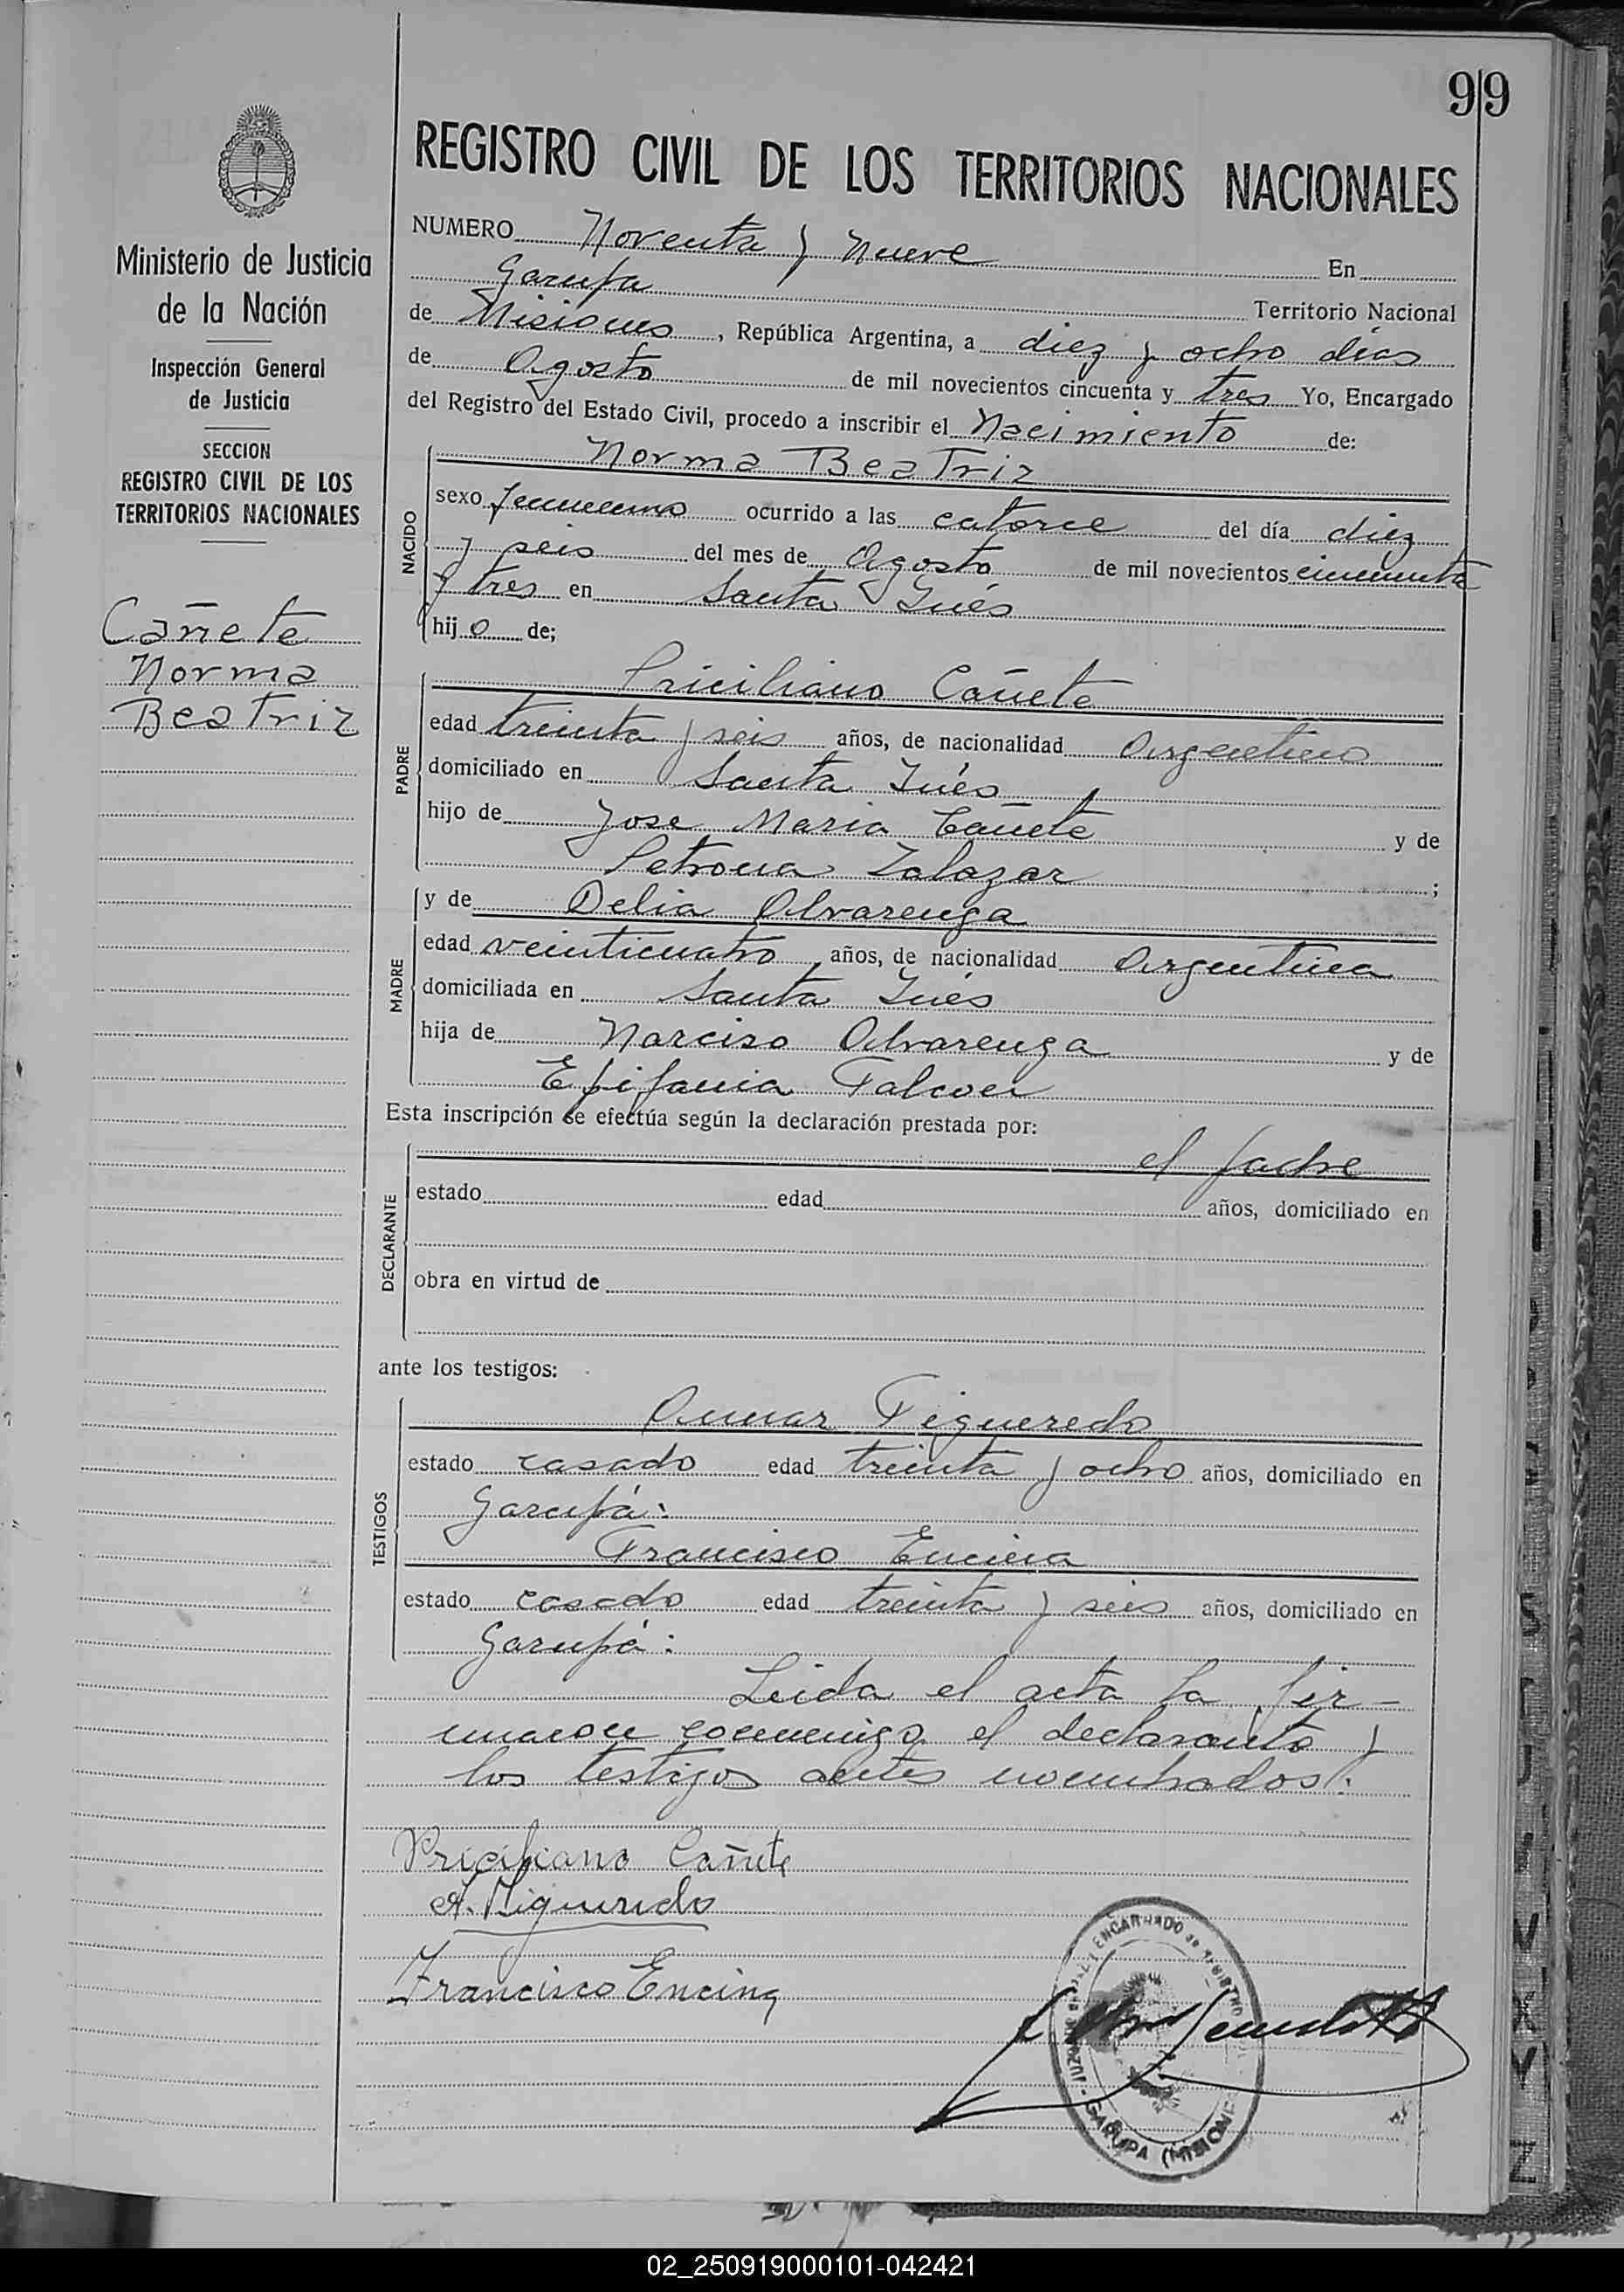 99
REGISTRO CIVIL DE LOS TERRITORIOS NACIONALES
Ministerio de Justicia
de la Nación
Inspección General
de Justicia
SECCION
REGISTRO CIVIL DE LOS
TERRITORIOS NACIONALES
Cañete
Norma
Beatriz
NUMERO Noventa y nueve En
Garupa Territorio Nacional
de Misiones, República Argentina, a diez y ocho días
de Agosto de mil novecientos cincuenta y tres Yo, Encargado
del Registro del Estado Civil, procedo a inscribir el Nacimiento de:
NACIDO
Norma Beatriz
sexo femenino ocurrido a las catorce del día diez
y seis del mes de Agosto de mil novecientos cincuenta
y tres en Santa Inés
hijo de;
PADRE
Priciliano Cañete
edad treinta y seis años, de nacionalidad Argentino
domiciliado en Santa Inés
hijo de Jose Maria Cañete y de
Petrona Zalazar ;
MADRE
y de Delia Alvarenga
edad veinticuatro años, de nacionalidad Argentina
domiciliada en Santa Inés
hija de Narciso Alvarenga y de
Epifania Falcon
Esta inscripción se efectúa según la declaración prestada por:
DECLARANTE
el padre
estado edad años, domiciliado en
obra en virtud de
ante los testigos:
TESTIGOS
Figueredo
estado casado edad treinta y ocho años, domiciliado en
Garupá:
Francisco Encina
estado casado edad treinta y seis años, domiciliado en
Garupá:
Leida el acta la fir-
maron conmigo el declarante y
los testigos antes nombrados.
Priciliano Cañete
A. Figueredo
Francisco Encina
ENCARGADO
GARUPA (MISIONES
02_250919000101-042421